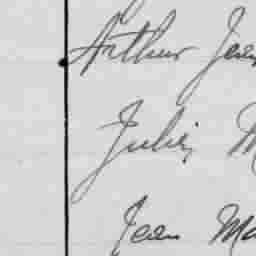 Arthur Jean
Julie M
Jean Ma